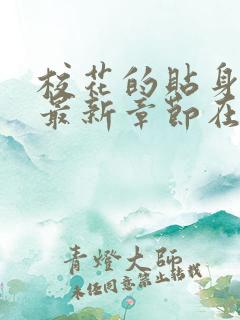 校花的貼身
最新章節在
青燈大師
未任同意禁止轉載